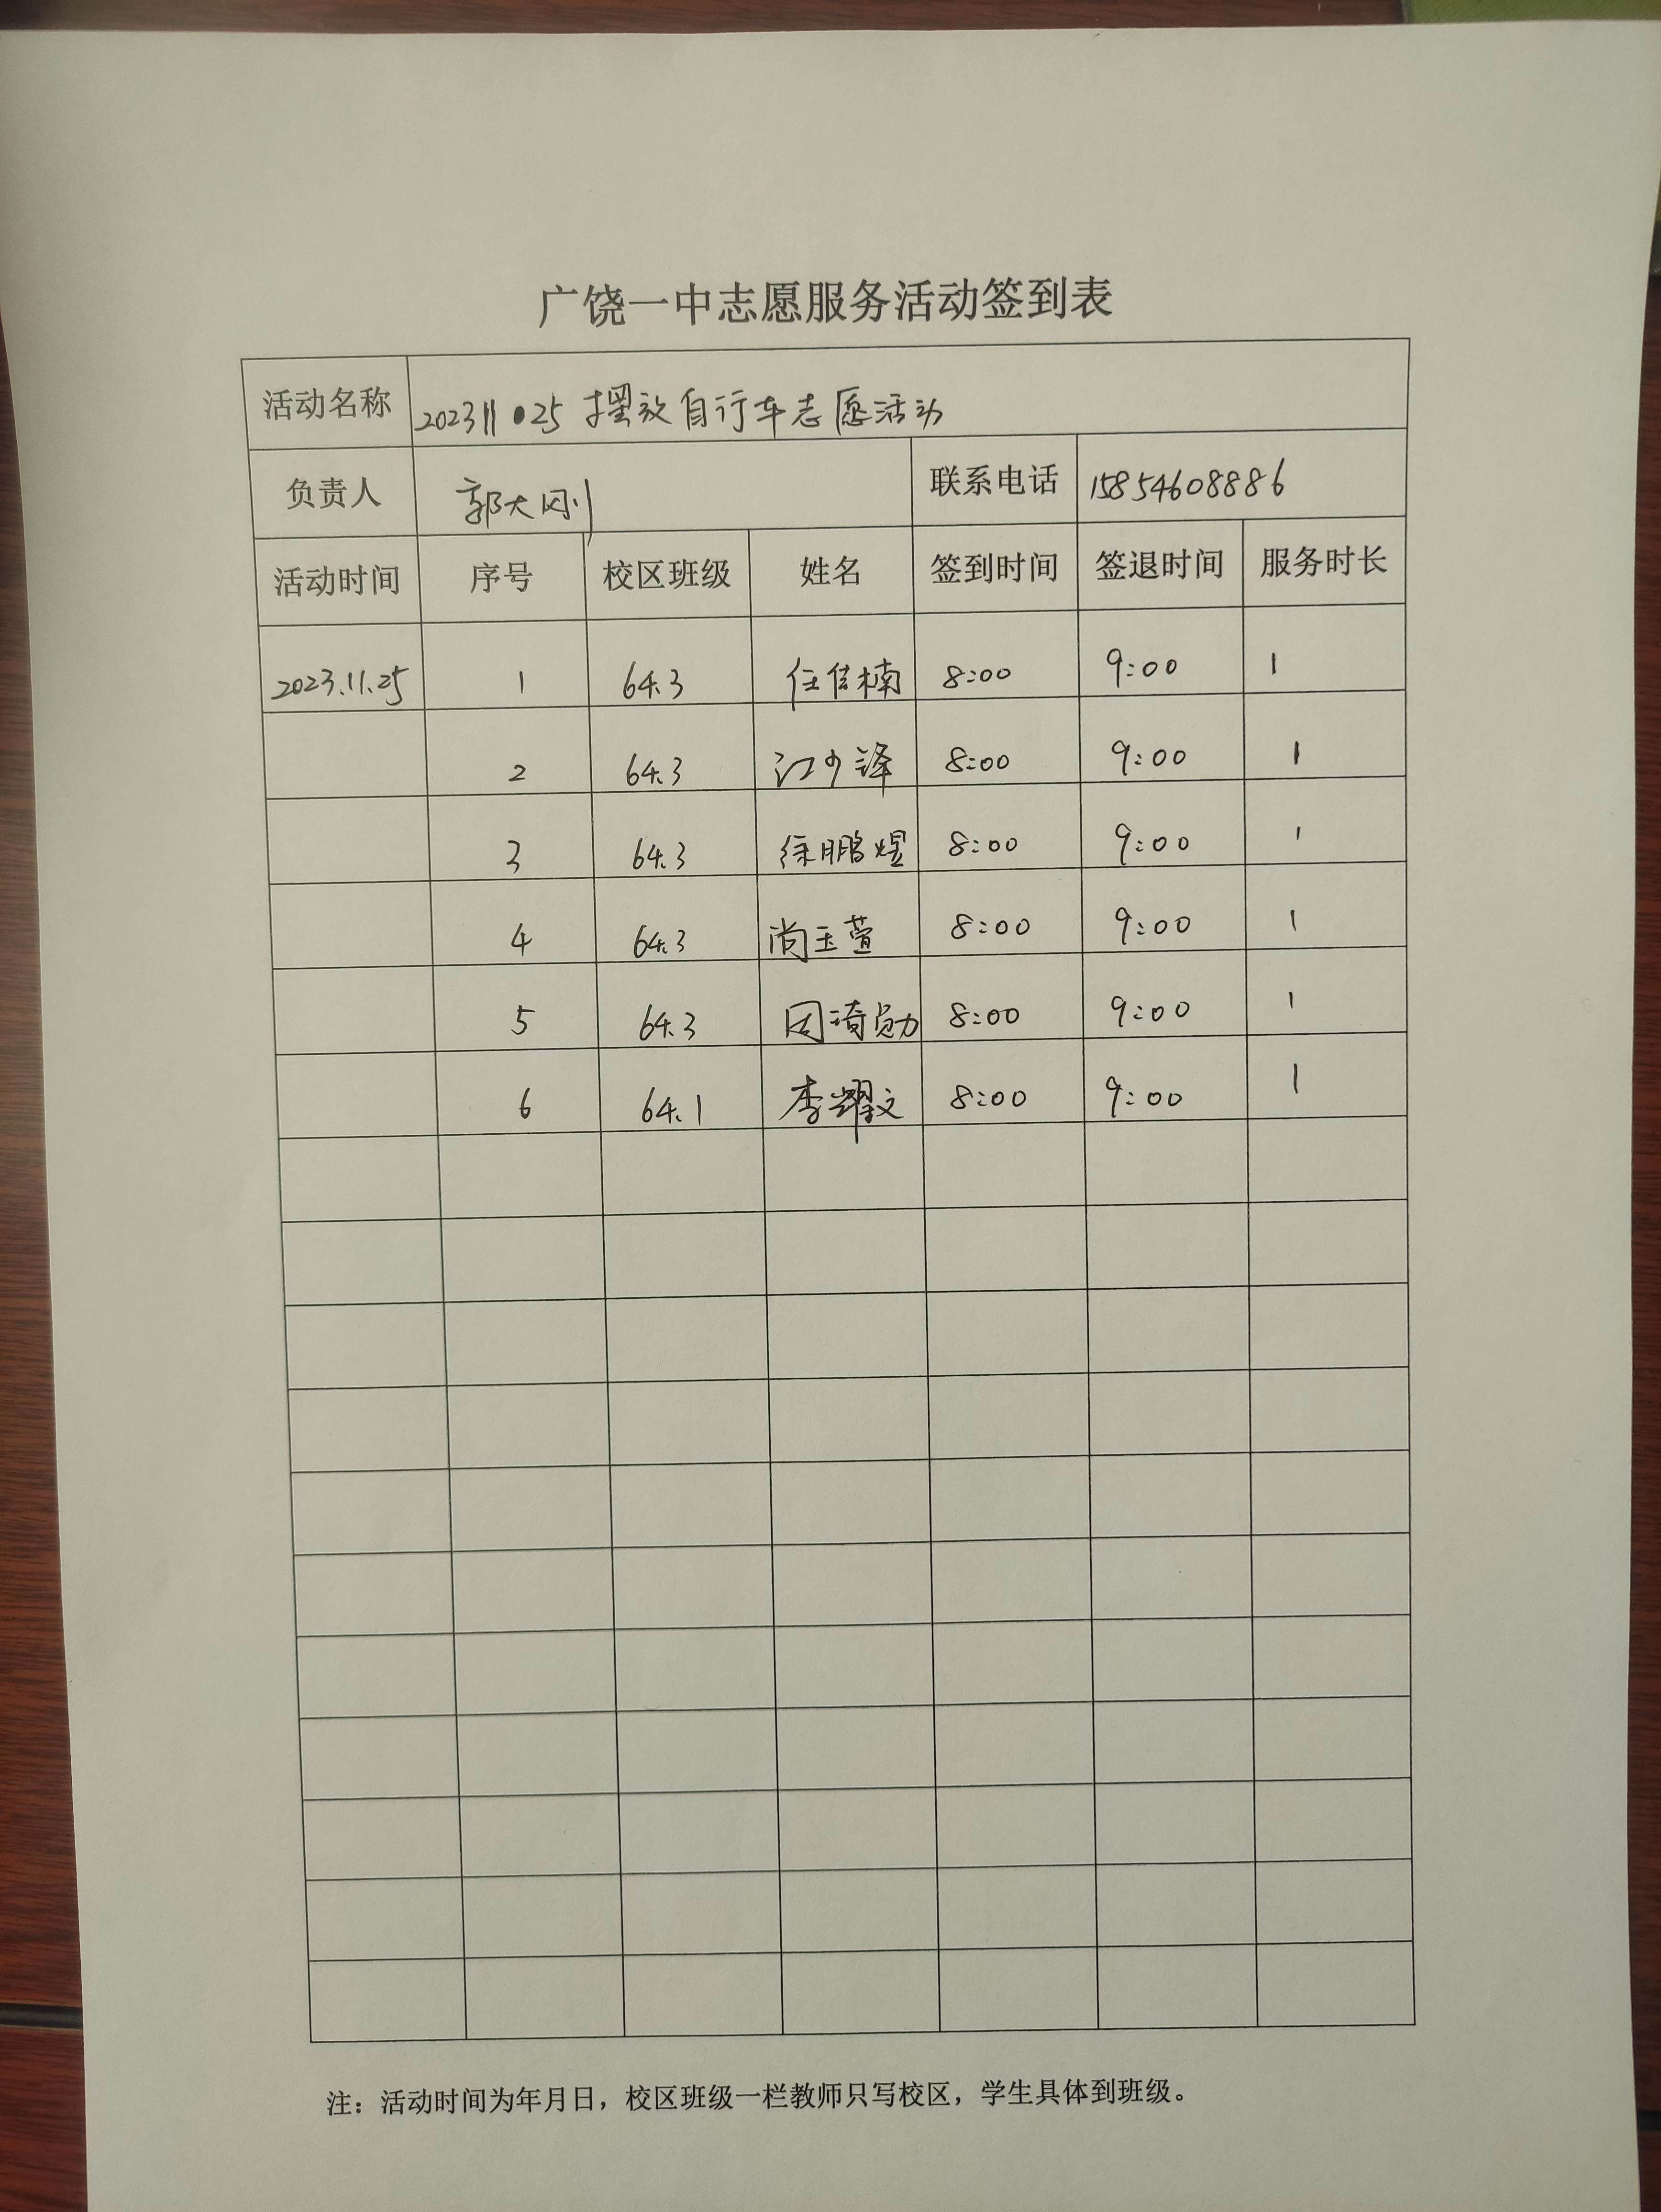 广饶一中志愿服务活动签到表
活动名称 202311.25 摆放自行车志愿活动
负责人 郭大刚 联系电话 15854608886
活动时间 序号 校区班级 姓名 签到时间 签退时间 服务时长
2023.11.25 1 64.3 任佳楠 8:00 9:00 1
2 64.3 江少泽 8:00 9:00 1
3 64.3 徐鹏煜 8:00 9:00 1
4 64.3 尚玉萱 8:00 9:00 1
5 64.3 周琦勋 8:00 9:00 1
6 64.1 李耀文 8:00 9:00 1
注：活动时间为年月日，校区班级一栏教师只写校区，学生具体到班级。